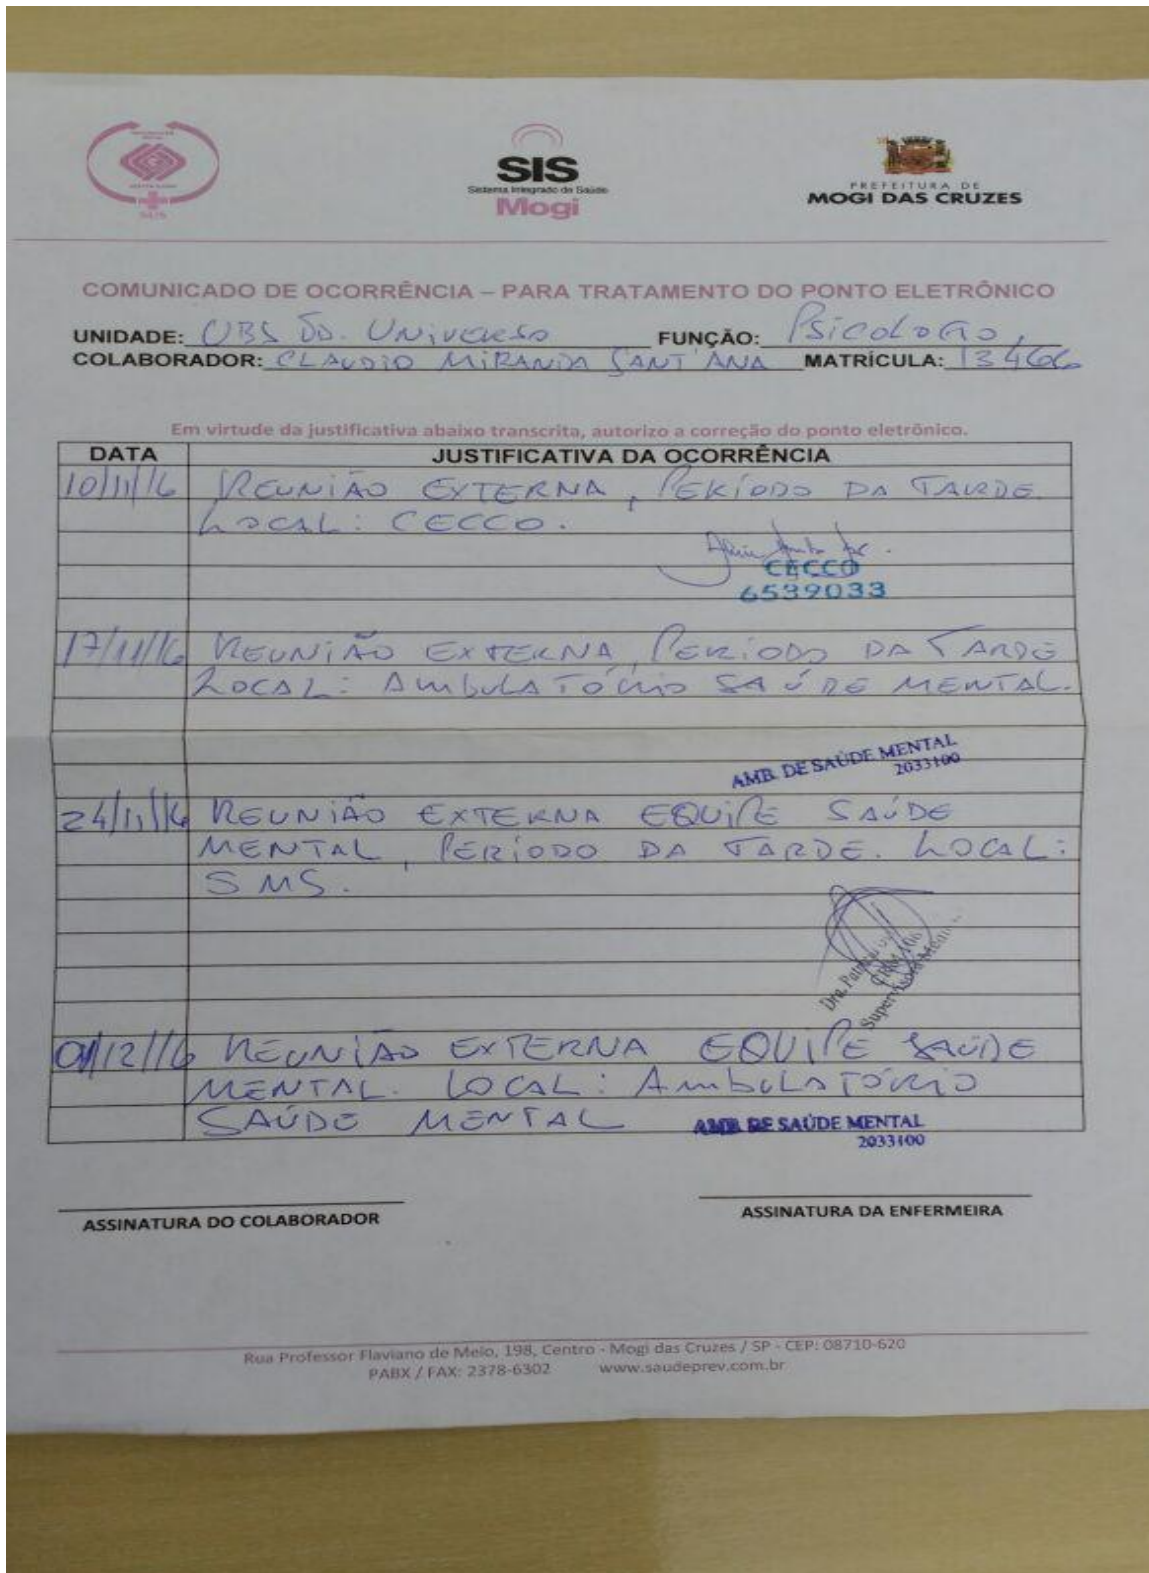 SUS
SIS
Sistema Integrado de Saúde
Mogi
PREFEITURA DE
MOGI DAS CRUZES
COMUNICADO DE OCORRÊNCIA – PARA TRATAMENTO DO PONTO ELETRÔNICO
UNIDADE: UBS JD. UNIVERSO FUNÇÃO: PSICOLOGO
COLABORADOR: CLAUDIO MIRANDA SANT'ANA MATRÍCULA: 13466
Em virtude da justificativa abaixo transcrita, autorizo a correção do ponto eletrônico.
DATA JUSTIFICATIVA DA OCORRÊNCIA
10/11/16 REUNIÃO EXTERNA, PERÍODO DA TARDE.
LOCAL: CECCO.
CECCO
6539033
17/11/16 REUNIÃO EXTERNA, PERÍODO DA TARDE
LOCAL: AMBULATÓRIO SAÚDE MENTAL.
AMB. DE SAÚDE MENTAL
2033100
24/11/16 REUNIÃO EXTERNA EQUIPE SAÚDE
MENTAL, PERÍODO DA TARDE. LOCAL:
SMS.
Dra.
CRM
Supervisora
01/12/16 REUNIÃO EXTERNA EQUIPE SAÚDE
MENTAL. LOCAL: AMBULATÓRIO
SAÚDE MENTAL
AMB. DE SAÚDE MENTAL
2033100
ASSINATURA DO COLABORADOR ASSINATURA DA ENFERMEIRA
Rua Professor Flaviano de Melo, 198, Centro - Mogi das Cruzes / SP - CEP: 08710-620
PABX / FAX: 2378-6302 www.saudeprev.com.br